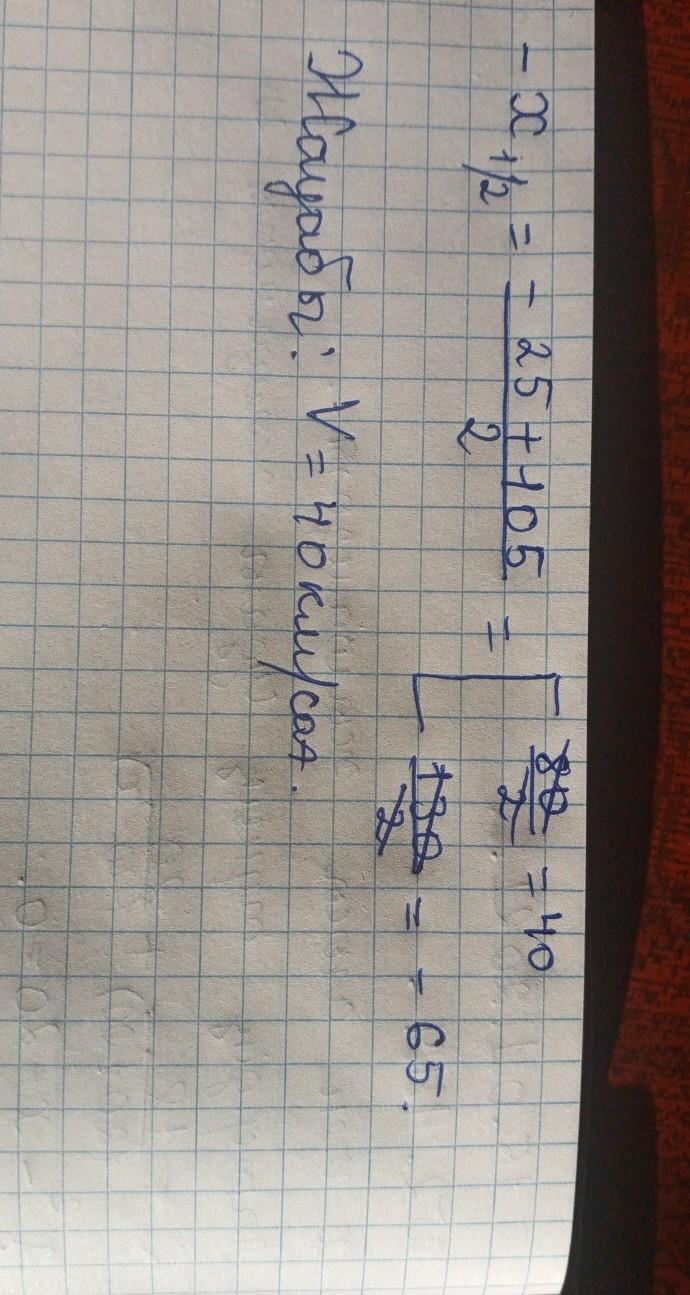 - x₁/₂ = - 25 + 105 / 2 = [ 80/2 = 40
130/2 = - 65.
Жауабы: V = 40 км/сағ.